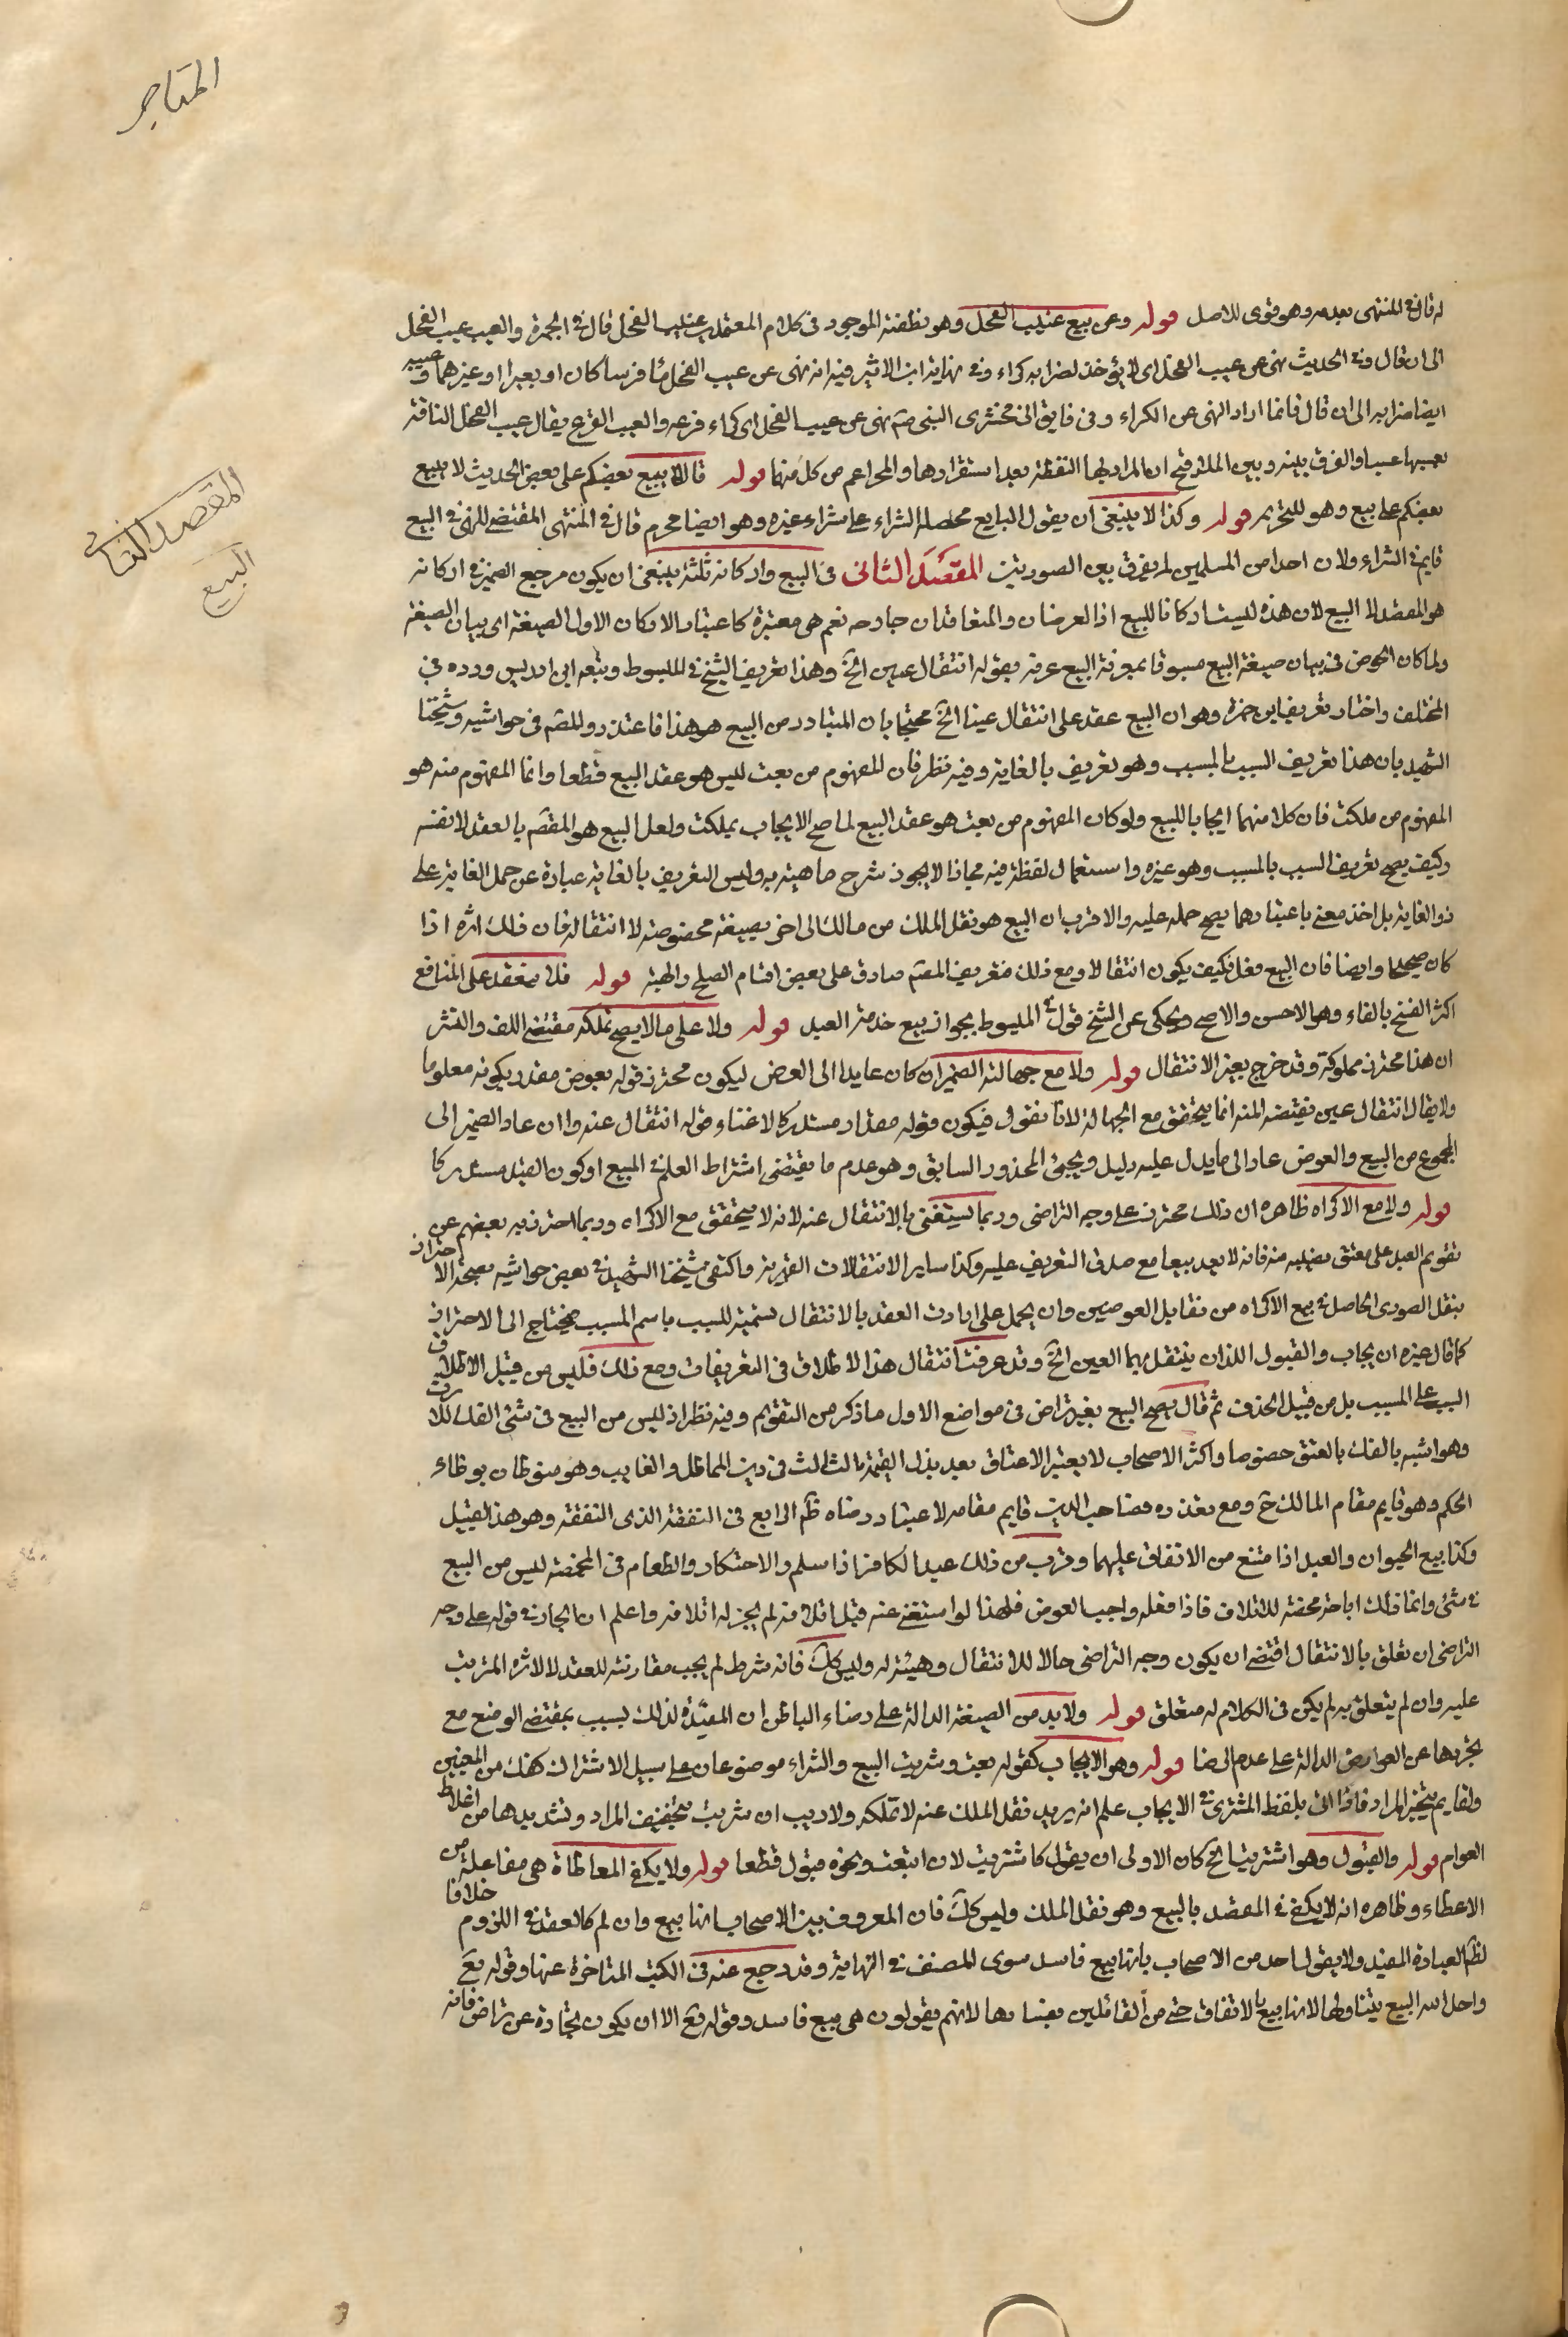 المتاجر
له قال في المنتهى بعدمه وهو قوى للاصل قوله وعن بيع عسيب الفحل وهو نطفته الموجود في كلام المعتمدين عسيب الفحل قال في الجمهرة والعسب عسب الفحل
الى ان قال وفي الحديث نهى عن عسب الفحل اى لا يؤخذ لضرابه كراء وفي نهاية ابن الاثير فيه انه نهى عن عسب الفحل ماؤه فرسا كان او بعيرا او غيرهما وعسبه
ايضا ضرابه الى ان قال فانما اراد النهى عن الكراء وفي فايق الزمخشرى النبى صم نهى عن عسب الفحل اى كراء قرعه والعسب القرع يقال عسب الفحل الناقة
يعسبها عسبا والفرق بينه وبين الملاقيح ان المراد بها النطفة بعد استقرارها والمحرا اعم من كل منهما قوله قال لا يبيع بعضكم على بعض الحديث لا يبيع
بعضكم على بيع وهو للتحريم قوله وكذا لا ينبغى ان يقول البايع محصله الشراء على شراء غيره وهو ايضا محرم قال في المنتهى المقتضى للنهى في البيع
قايم في الشراء ولان احدا من المسلمين لم يفرق بين الصورتين المقصد الثانى في البيع واركانه ثلثة ينبغى ان يكون مرجع الضمير في اركانه
المقصد الثانى
البيع
هو المقصد لا البيع لان هذه ليست اركانا للبيع اذ العوضان والمتعاقدان خارجه نعم هى معتبرة كاعتبار الاركان الاول الصيغة اى بيان الصيغة
ولما كان الخوض في بيان صيغة البيع مسبوقا بمعرفة البيع عرفه بقوله انتقال عين الخ وهذا تعريف الشيخ في المبسوط وتبعه ابن ادريس ورده في
المختلف واختار تعريف ابن حمزه وهو ان البيع عقد على انتقال عين الخ محتجا بان المتبادر من البيع هو هذا فاعتذر والمصم في حواشيه وشيخنا
الشهيد بان هذا تعريف السبب بالمسبب وهو تعريف بالغاية وفيه نظر فان المفهوم من بعت ليس هو عقد البيع قطعا وانما المفهوم منه هو
المفهوم من ملكت فان كلا منهما ايجابا للبيع ولو كان المفهوم من بعت هو عقد البيع لما صح الايجاب بملكت ولعل البيع هو المقصم بالعقد لا نفسه
وكيف يصح تعريف السبب بالمسبب وهو غيره واستعمال لفظة فيه مجازا لا يجوز شرح ماهيته به وليس التعريف بالغاية عبارة عن حمل الغاية على
ذو الغاية بل اخذ معنى باعتبارهما يصح حمله عليه والاقرب ان البيع هو نقل الملك من مالك الى اخر بصيغة مخصوصة لا انتقاله فان ذلك اثره اذا
كان صحيحا وايضا فان البيع فعل فكيف يكون انتقالا ومع ذلك فتعريف المقسم صادق على بعض اقسام الصلح والهبة قوله فلا ينعقد على المنافع
اكثر النسخ بالفاء وهو الاحسن والاصح ويحكى عن الشيخ قول في المبسوط بجواز بيع خدمة العبد قوله ولا على ما لا يصح تملكه مقتضى اللف والنشر
ان هذا محترز مملوكة وقد خرج بعين الانتقال قوله ولا مع جهالته الضمير ان كان عايدا الى العوض ليكون محترز قوله بعوض مقدر بكونه معلوما
ولا يقال انتقال عين يقتضيه المنه انما يتحقق مع الجهالة لانا نقول فيكون قوله مقدار مستدركا لاغناء قوله انتقال عنه وان عاد الضمير الى
المجموع من المبيع والعوض عاد الى ما يدل عليه دليل ويجئ المحذور السابق وهو عدم ما يقتضى اشتراط العلم في المبيع او كون القيد مستدركا
قوله ولا مع الاكراه ظاهره ان ذلك محترز على وجه التراضى وربما يستغنى بالانتقال عنه لانه لا يتحقق مع الاكراه وربما احترز به بعضهم عن
تقويم العبد على معتق نصيبه منه فانه لا يعد بيعا مع صدق التعريف عليه وكذا ساير الانتقالات القهرية واكتفى شيخنا الشهيد في بعض حواشيه بصحة الاحتراز
بنقل الصورى الحاصل في بيع الاكراه من تقابل العوضين وان يحمل على ارادت العقد بالانتقال تسمية للسبب باسم المسبب فيحتاج الى الاحتراز
كما قال غيره ان يجاب والقبول اللذان ينتقل بهما العين الخ وقد عرفت انتقال هذا الاطلاق في التعريفات ومع ذلك فليس من قبيل الاطلاق
السبب على المسبب بل من قبيل الحذف ثم قال يصح البيع بغير تراض في مواضع الاول ما ذكر من التقويم وفيه نظر اذ ليس من البيع في شئ الفك للارث
وهو اشبه بالفك بالعتق خصوصا واكثر الاصحاب لا يعتبر الاعتاق بعد بذل القيمة الثالث في دين المماطل والغايب وهو منوطان بوظاء
الحكم وهو قايم مقام المالك ح ومع تعذره فصاحب الدين قايم مقامه لاعتبار رضاه ظم الرابع في النفقة الذى النفقة وهو هذا القبيل
وكذا بيع الحيوان والعبد اذا امتنع من الانفاق عليهما وقرب من ذلك عبد الكافر اذا سلم والاحتكار والطعام في المخمصة ليس من البيع
في شئ وانما ذلك اباحة محضة للاتلاف فاذا فعله واجب العوض فلهذا لو استغنى عنه قبل اتلافه لم يجز له اتلافه واعلم ان الجار في قوله على وجه
التراضى ان تعلق بالانتقال اقتضى ان يكون وجه التراضى حالا للانتقال وهيئة له وليس كك فانه شرط لم يجب مقارنته للعقد لا لاثره المترتب
عليه وان لم يتعلق به لم يكن في الكلام له متعلق قوله ولا بد من الصيغة الدالة على رضاء الباطن ان المقيدة لذلك بسبب بمقتضى الوضع مع
تجردها عن العوارض الدالة على عدم الرضا قوله وهو الايجاب كقوله بعت وشريت البيع والشراء موضوعان على سبيل الاشتراك كذلك من المعنيين
ولقايم يتخير المراد فاذا اتى بلفظ المشترى في الايجاب علم انه يريد نقل الملك عنه لا تملكه ولا ريب ان شريت بتخفيف المراد وتشديدها من اغلاط
العوام قوله والقبول وهو اشتريت الخ كان الاولى ان يقول كاشتريت لان ابتعت ونحوه قبول قطعا قوله ولا يكفى المعاطاة هى مفاعلة من
الاعطاء وظاهره انه لا يكفى في المقصد بالبيع وهو نقل الملك وليس كك فان المعروف بين الاصحاب انها بيع وان لم كالعقد في اللزوم خلافا
لظم العبارة المفيد ولا يقول احد من الاصحاب بانها بيع فاسد سوى المصنف في النهاية وقد رجع عنه في الكتب المتاخرة عنها وقوله تع
واحل الله البيع يتناولها لانها بيع بالاتفاق حتى من القائلين بفسادها لانهم يقولون هى بيع فاسد وقوله تع الا ان يكون تجارة عن تراض فانه